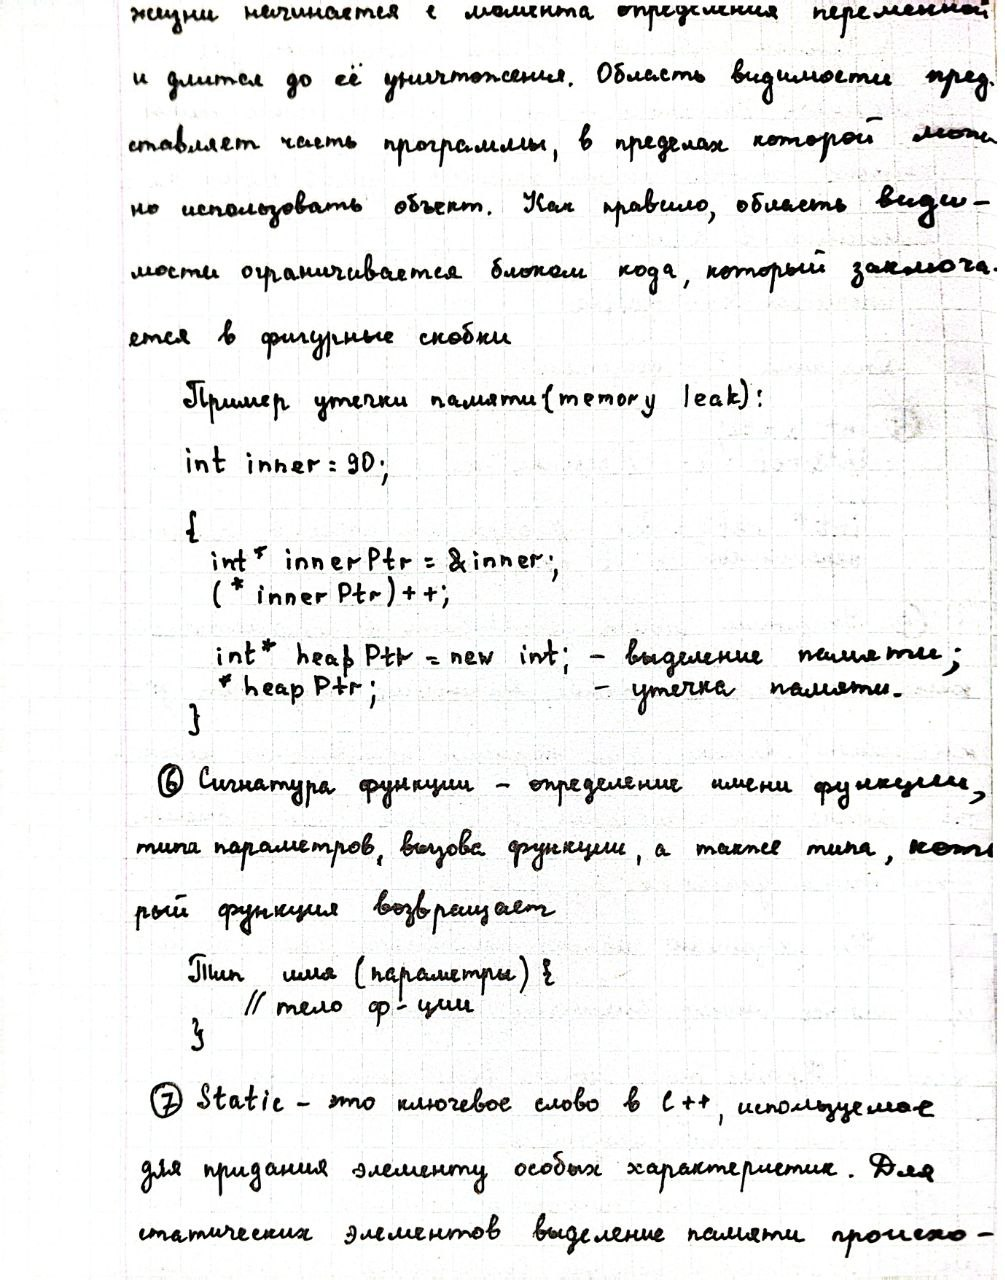 жизни начинается с момента определения переменной
и длится до её уничтожения. Область видимости пред-
ставляет часть программы, в пределах которой мож
но использовать объект. Как правило, область види-
мости ограничивается блоком кода, который заключа-
ется в фигурные скобки
Пример утечки памяти (memory leak):
int inner = 90;
{
int* innerPtr = &inner;
(* innerPtr)++;
int* heapPtr = new int; - выделение памяти;
* heapPtr; - утечка памяти.
}
⑥ Сигнатура функции - определение имени функции,
типа параметров, вызова функции, а также типа, кото
рый функция возвращает
Тип имя (параметры) {
// тело ф-ции
}
⑦ Static - это ключевое слово в C++, используемое
для придания элементу особых характеристик. Для
статических элементов выделение памяти происхо-